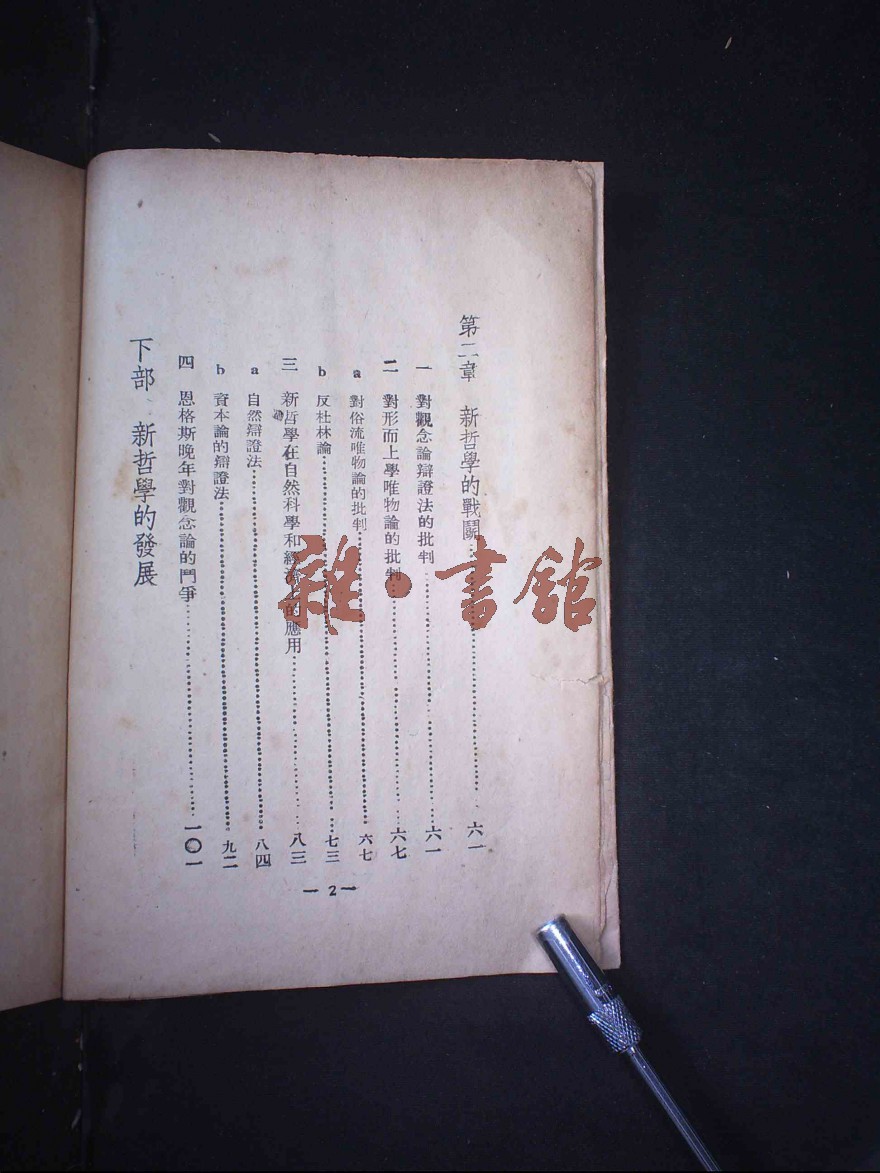 第二章 新哲學的戰鬭……六一
一 對觀念論辯證法的批判……六一
二 對形而上學唯物論的批判……六七
a 對俗流唯物論的批判……六七
b 反杜林論……七三
三 新哲學在自然科學和經濟上的應用……八三
a 自然辯證法……八四
b 資本論的辯證法……九二
四 恩格斯晚年對觀念論的鬥爭……一〇一
下部 新哲學的發展
—2—
雜·書館